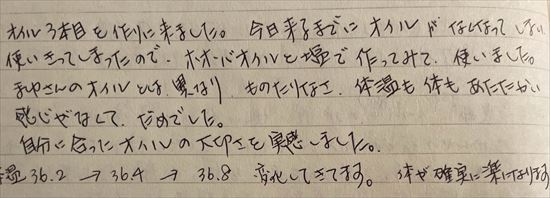 オイル3本目を作りに来ました。今日来るまでにオイルがなくなってしまい
使いきってしまったので、ホホバオイルと塩で作ってみて、使いました。
まやさんのオイルとは異なり、ものたりなさ、体温も体もあたたかい
感じがなくて、だめでした。
自分に合ったオイルの大切さを実感しました。
温36.2 → 36.4 → 36.8 変化してきてます。体が確実に楽になります